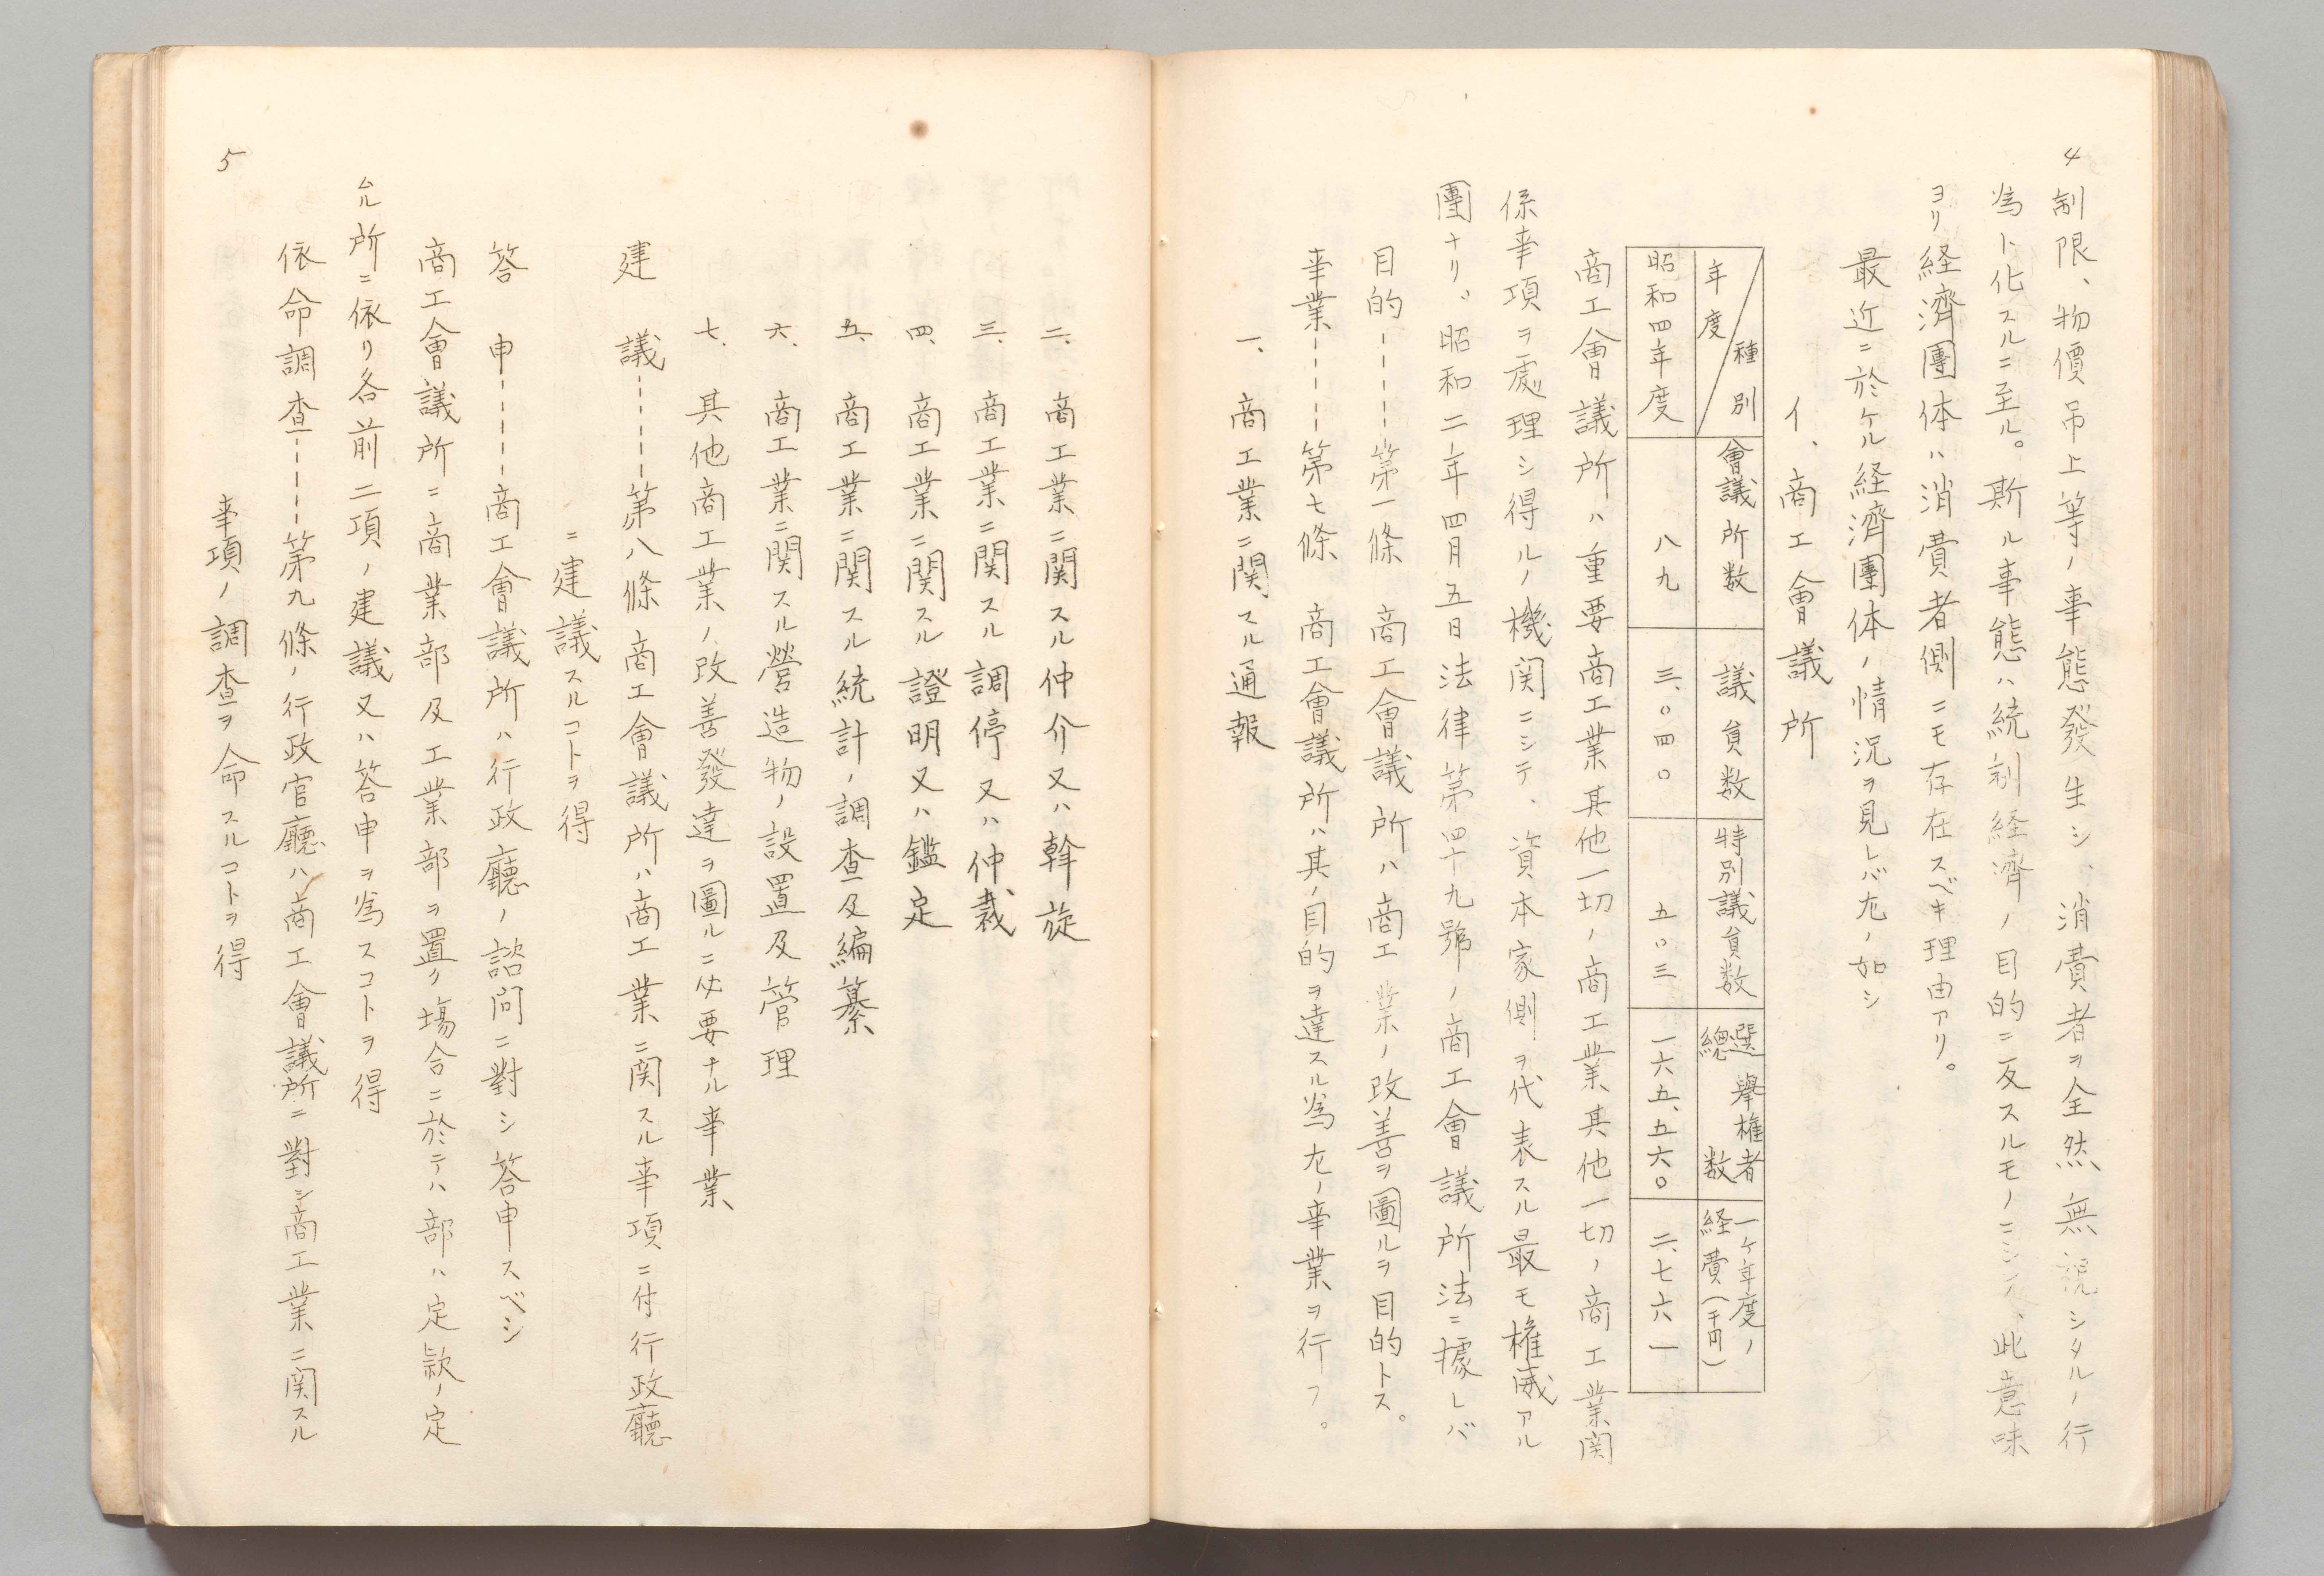 4
制限、物價吊上等ノ事態發生シ、消費者ヲ全然無視シタルノ行
為ト化スルニ至ル。斯ル事態ハ統制経済ノ目的ニ反スルモノニシテ、此意味
ヨリ経濟團体ハ消費者側ニモ存在スベキ理由アリ。
最近ニ於ケル経濟團体ノ情況ヲ見レバ左ノ如シ
イ、商工會議所
種別
年度
會議所数
議員数
特別議員数
選舉権者
總数
一ケ年度ノ
経費(千円)
昭和四年度
八九
三、〇四〇
五〇三
一六五、五六〇
二、七六一
商工會議所ハ重要商工業其他一切ノ商工業其他一切ノ商工業関
係事項ヲ處理シ得ルノ機関ニシテ、資本家側ヲ代表スル最モ権威アル
團ナリ。昭和二年四月五日法律第四十九號ノ商工會議所法ニ據レバ
目的-----第一條 商工會議所ハ商工業ノ改善ヲ圖ルヲ目的トス。
事業-----第七條 商工會議所ハ其ノ目的ヲ達スル為左ノ事業ヲ行フ。
一、商工業ニ関スル通報
二、商工業ニ関スル仲介又ハ斡旋
三、商工業ニ関スル調停又ハ仲裁
四、商工業ニ関スル證明又ハ鑑定
五、商工業ニ関スル統計ノ調査及編纂
六、商工業ニ関スル營造物ノ設置及管理
七、其他商工業ノ改善發達ヲ圖ルニ必要ナル事業
建議-----第八條 商工會議所ハ商工業ニ関スル事項ニ付行政廳
ニ建議スルコトヲ得
答申-----商工會議所ハ行政廳ノ諮问ニ對シ答申スベシ
商工會議所ニ商業部及工業部ヲ置ク塲合ニ於テハ部ハ定款ノ定
ムル所ニ依リ各前二項ノ建議又ハ答申ヲ為スコトヲ得
依命調査-----第九條ノ行政官廳ハ商工會議所ニ對シ商工業ニ関スル
事項ノ調査ヲ命スルコトヲ得
5